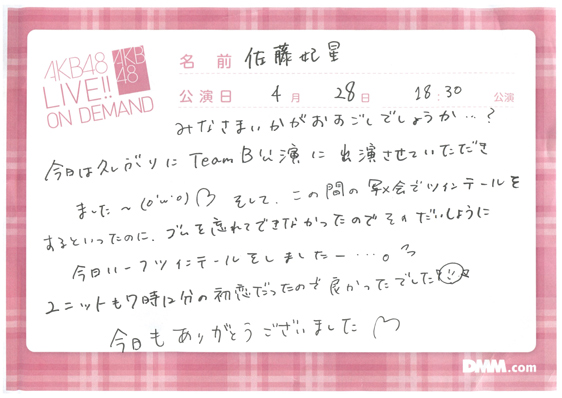 AKB48
LIVE!!
ON DEMAND
AKB
48
名前 佐藤妃星
公演日 4月 28日 18:30 公演
みなさまいかがおすごしでしょうか…?
今日は久しぶりに TeamB公演に出演させていただき
ました〜(o'ω'o) そして、この間の写メ会でツインテールを
するといったのに、ゴムを忘れてできなかったのでそのだいしょうに
今日ハーフツインテールをしましたー…。
ユニットも7時12分の初恋だったので良かったでした
今日もありがとうございました
DMM.com